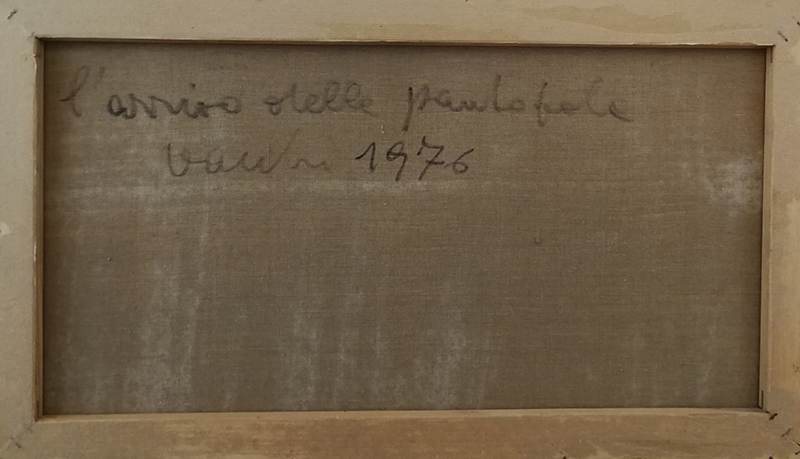 l'arrivo delle pantofole
1976